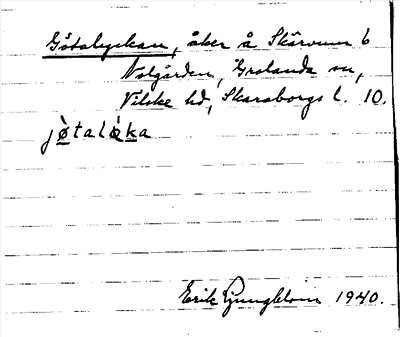 Götalyckan, åker å Skärvum 6
Nolgården, Grolanda sn,
Vilske hd, Skaraborgs l. 10.
jø̀taløka
Erik Ljungblom 1940.